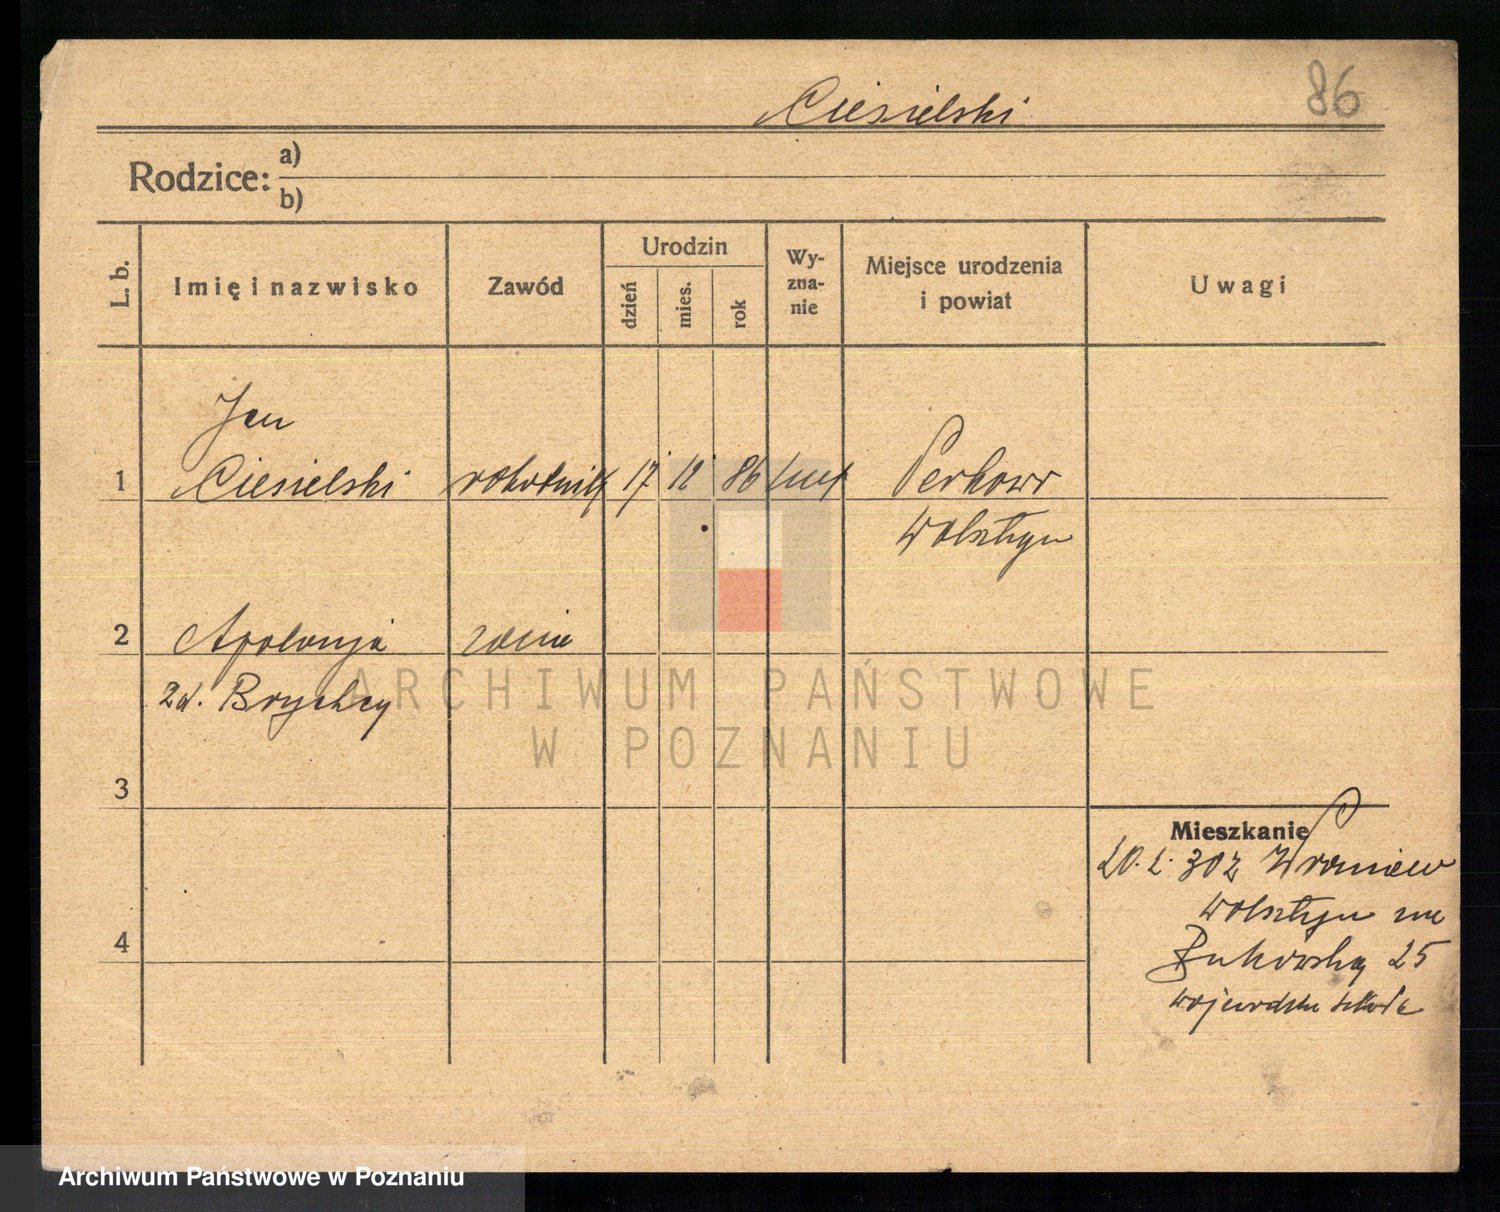 Ciesielski
86
Rodzice:
a)
b)
L. b.
Imię i nazwisko
Zawód
Urodzin
dzień
mies.
rok
Wy-
zna-
nie
Miejsce urodzenia
i powiat
Uwagi
Jan
1 Ciesielski robotnik 17 12 86 Perkowo
Wolsztyn
2 Apolonja
zd. Brychcy
3
Mieszkanie
20.2.302 Wroniawy
Wolsztyn
4
Bukowska 25
ARCHIWUM PAŃSTWOWE
W POZNANIU
Archiwum Państwowe w Poznaniu